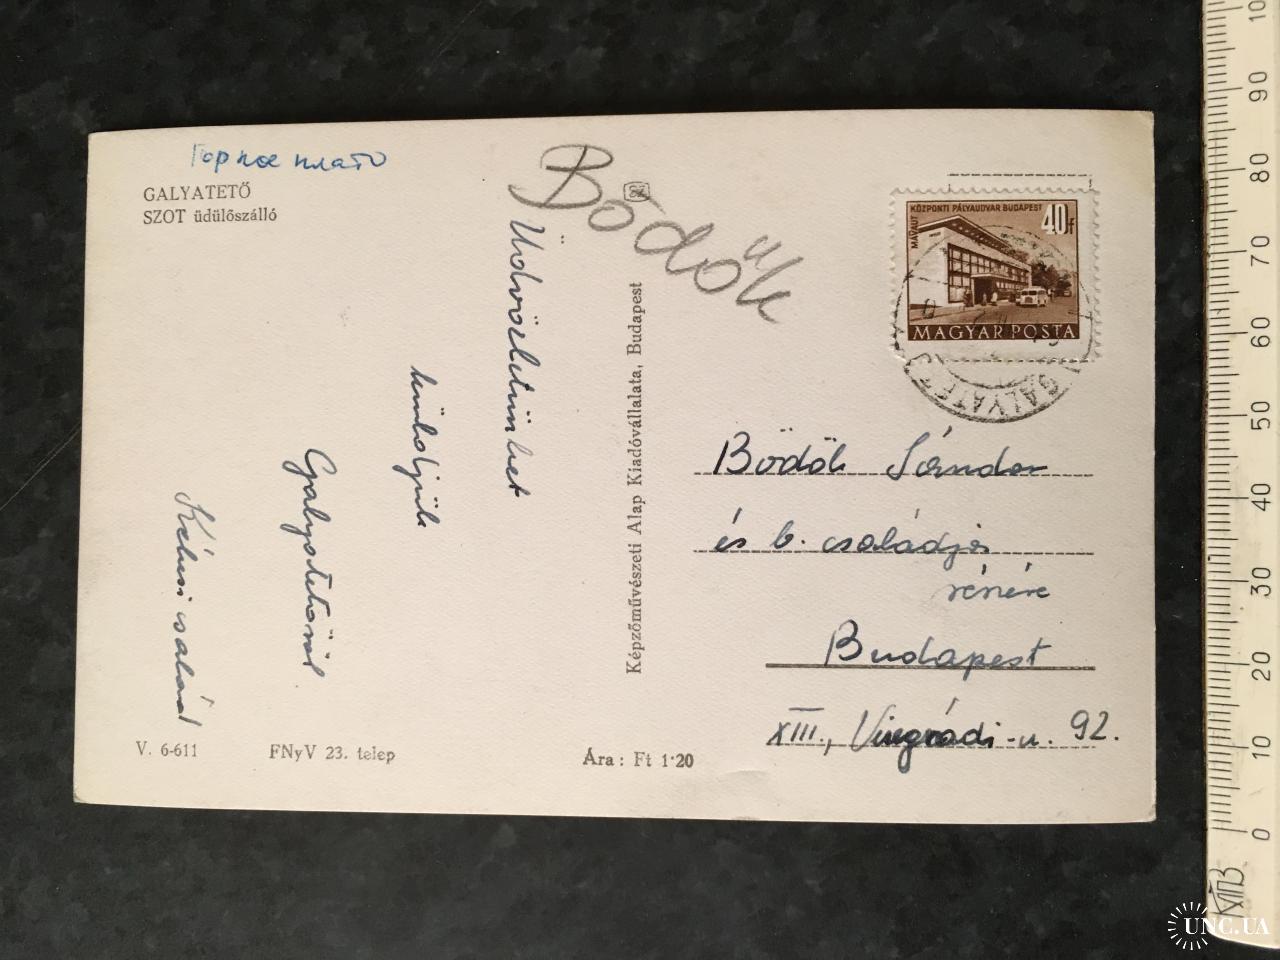 Горное плато
GALYATETŐ
SZOT üdülőszálló
Bödők
Üdvözletünket
küldjük
Galyatetőről
család
V. 6-611
FNyV 23. telep
Ára: Ft 1·20
Képzőművészeti Alap Kiadóvállalata, Budapest
MÁVAUT KÖZPONTI PÁLYAUDVAR BUDAPEST
40f
MAGYAR POSTA
GALYATETŐ
Bödők Sándor
és b. családja
részére
Budapest
XIII., Visegrádi-u. 92.
0 10 20 30 40 50 60 70 80 90 10
UNC.UA